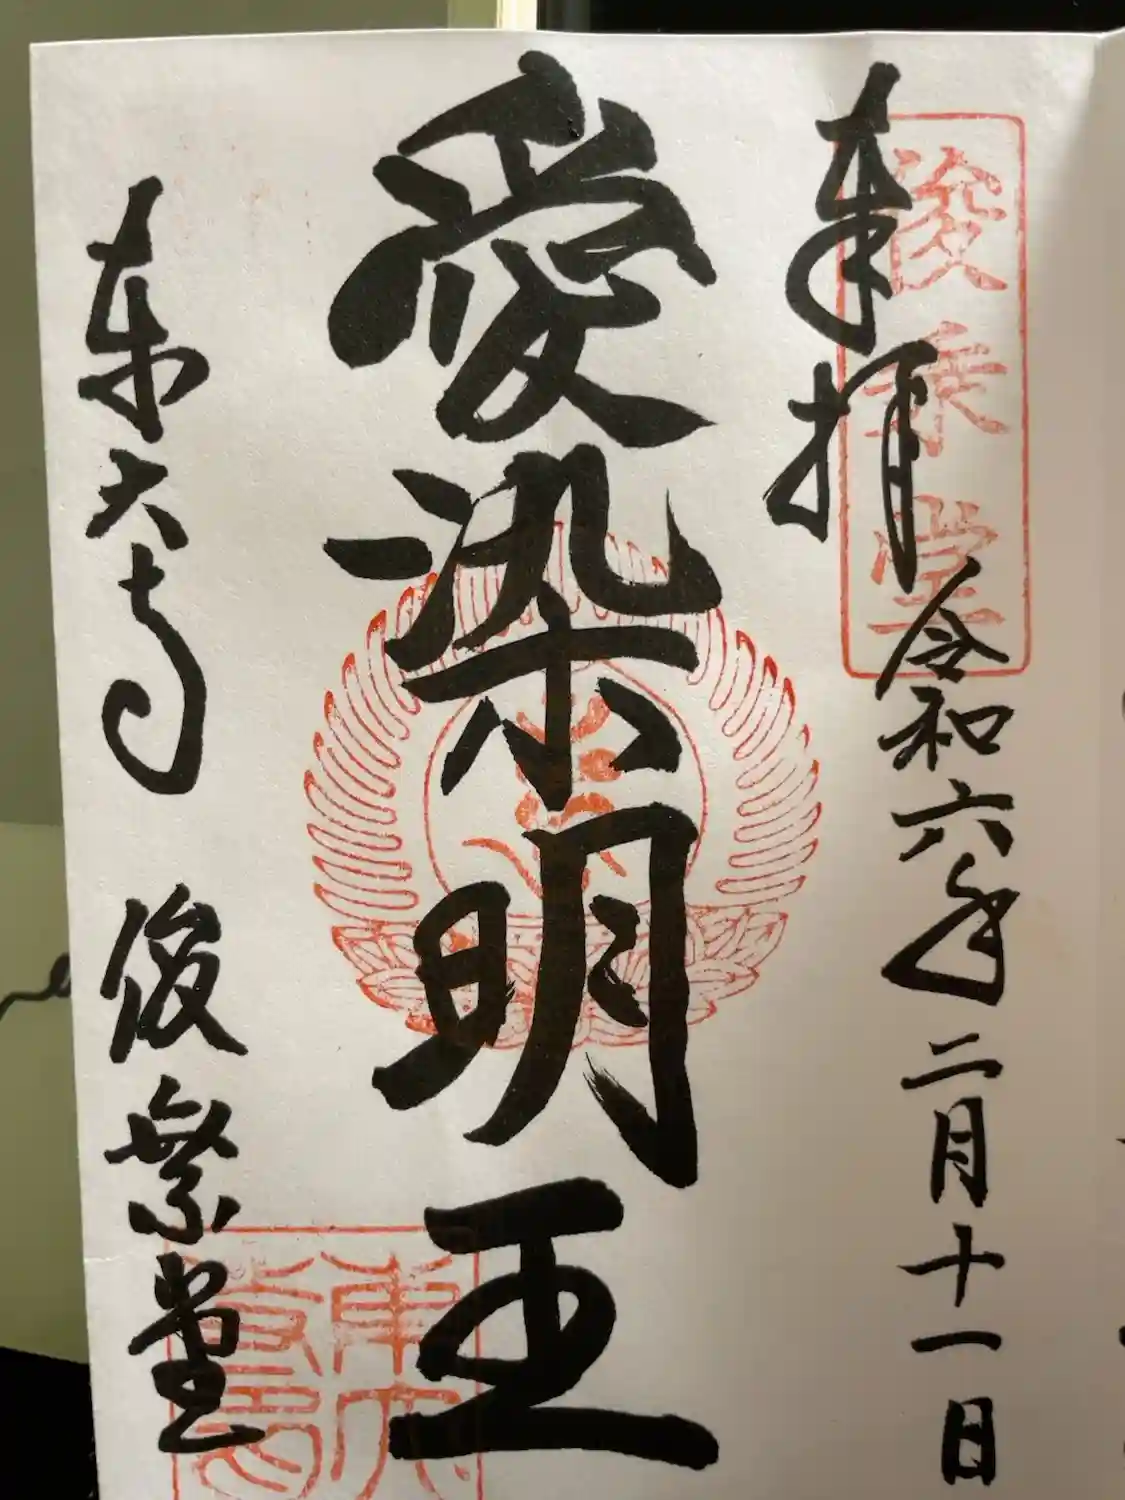 奉拝
令和六年二月十一日
俊乗堂
愛染明王
東大寺 俊乗堂